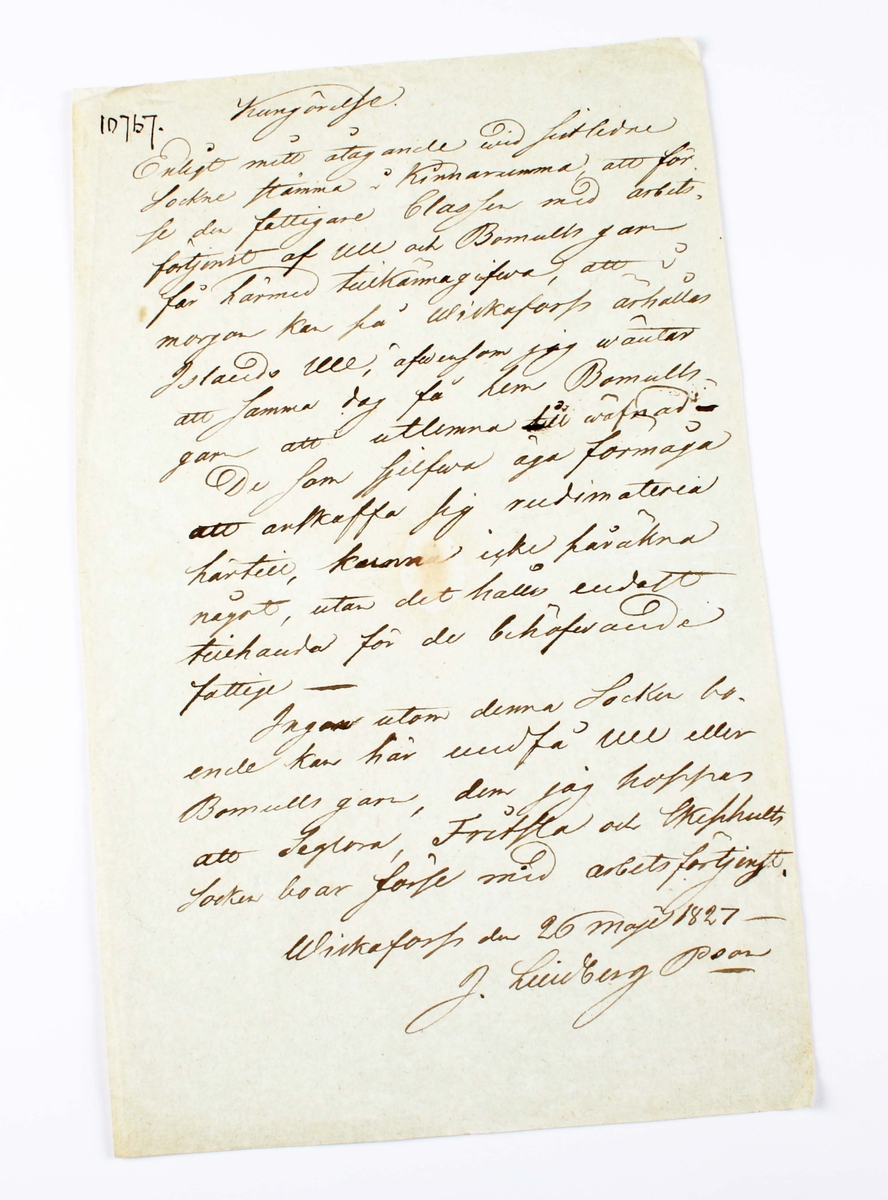 10767.
Kungörelse.
Enligt mitt åtagande wid sistledne
Sockne stämma i Kinnarumma, att för
se den fattigare Classen med arbets-
förtjenst af Ull och Bomulls garn
får härmed tillkännagifwa, att i
morgon kan på Wiskaforss ärhållas
Islands Ull, äfwensom jag wäntar
att samma dag få hem Bomulls
garn att utlemna till wäfnad –
De som sjelfwa äga förmåga
att anskaffa sig rudimateria
härtill, kunna icke påräkna
något, utan det hålles endast
tillhanda för de behöfwande
fattige —
Ingen utom denna Socken bo-
ende kan här undfå Ull eller
Bomulls garn, dem jag hoppas
att Seglora, Fritsla och Skephults
Socken boar förse med arbetsförtjenst.
Wiskaforss den 26 Maji 1827 —
J. Lindberg Pson